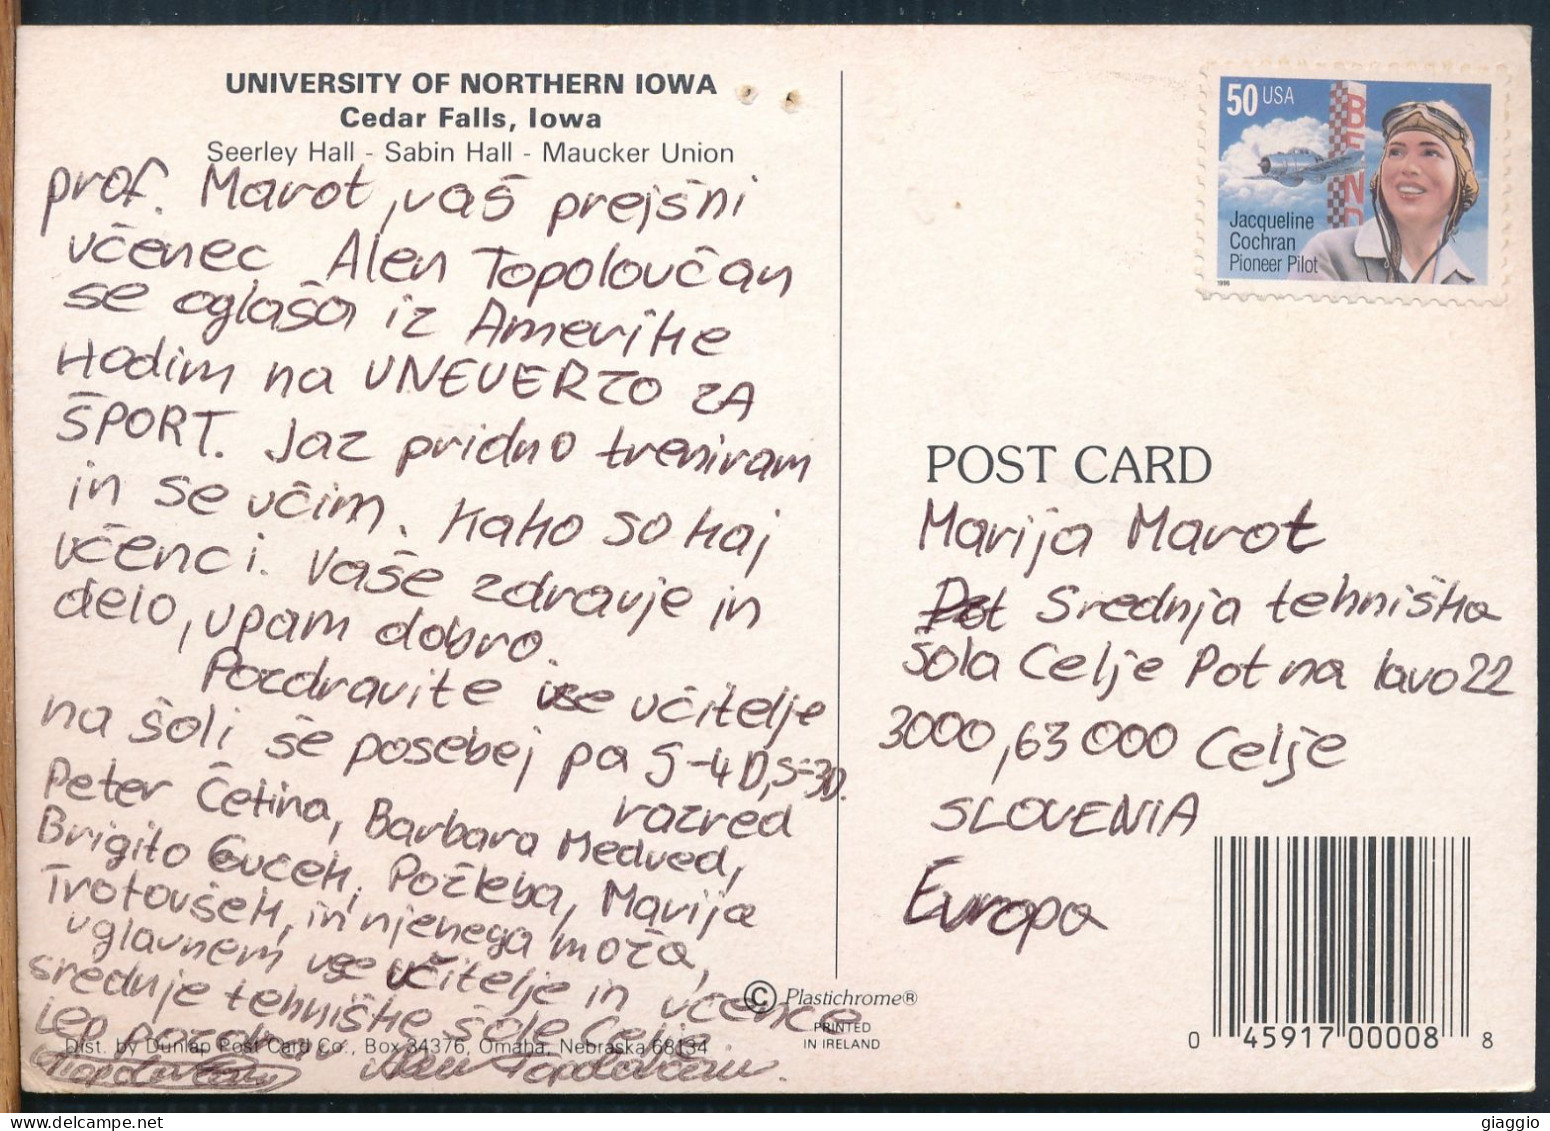 UNIVERSITY OF NORTHERN IOWA
Cedar Falls, Iowa
Seerley Hall - Sabin Hall - Maucker Union
prof. Marot, vaš prejšni
učenec Alen Topoloučan
se oglaša iz Amerike
Hodim na UNEVERZO ZA
ŠPORT. Jaz pridno treniram
in se učim. Kako so kaj
učenci. Vaše zdravje in
delo, upam dobro.
Pozdravite vse učitelje
na šoli še posebej pa S-4D, S-3D.
razred
Peter Četina, Barbara Medved,
Brigito Guček, Požleba, Marija
Trotovšek, in njenega moža,
uglavnem vse učitelje in učence
srednje tehniške šole Celje
lep pozdrav
Alen Topoloučan.
Dist. by Dunlap Post Card Co., Box 34376, Omaha, Nebraska 68134
© Plastichrome®
PRINTED
IN IRELAND
50 USA
BEND
Jacqueline
Cochran
Pioneer Pilot
1996
POST CARD
Marija Marot
Pot Srednja tehniška
šola Celje Pot na lavo 22
3000, 63 000 Celje
SLOVENIA
Evropa
0 45917 00008 8
giaggio